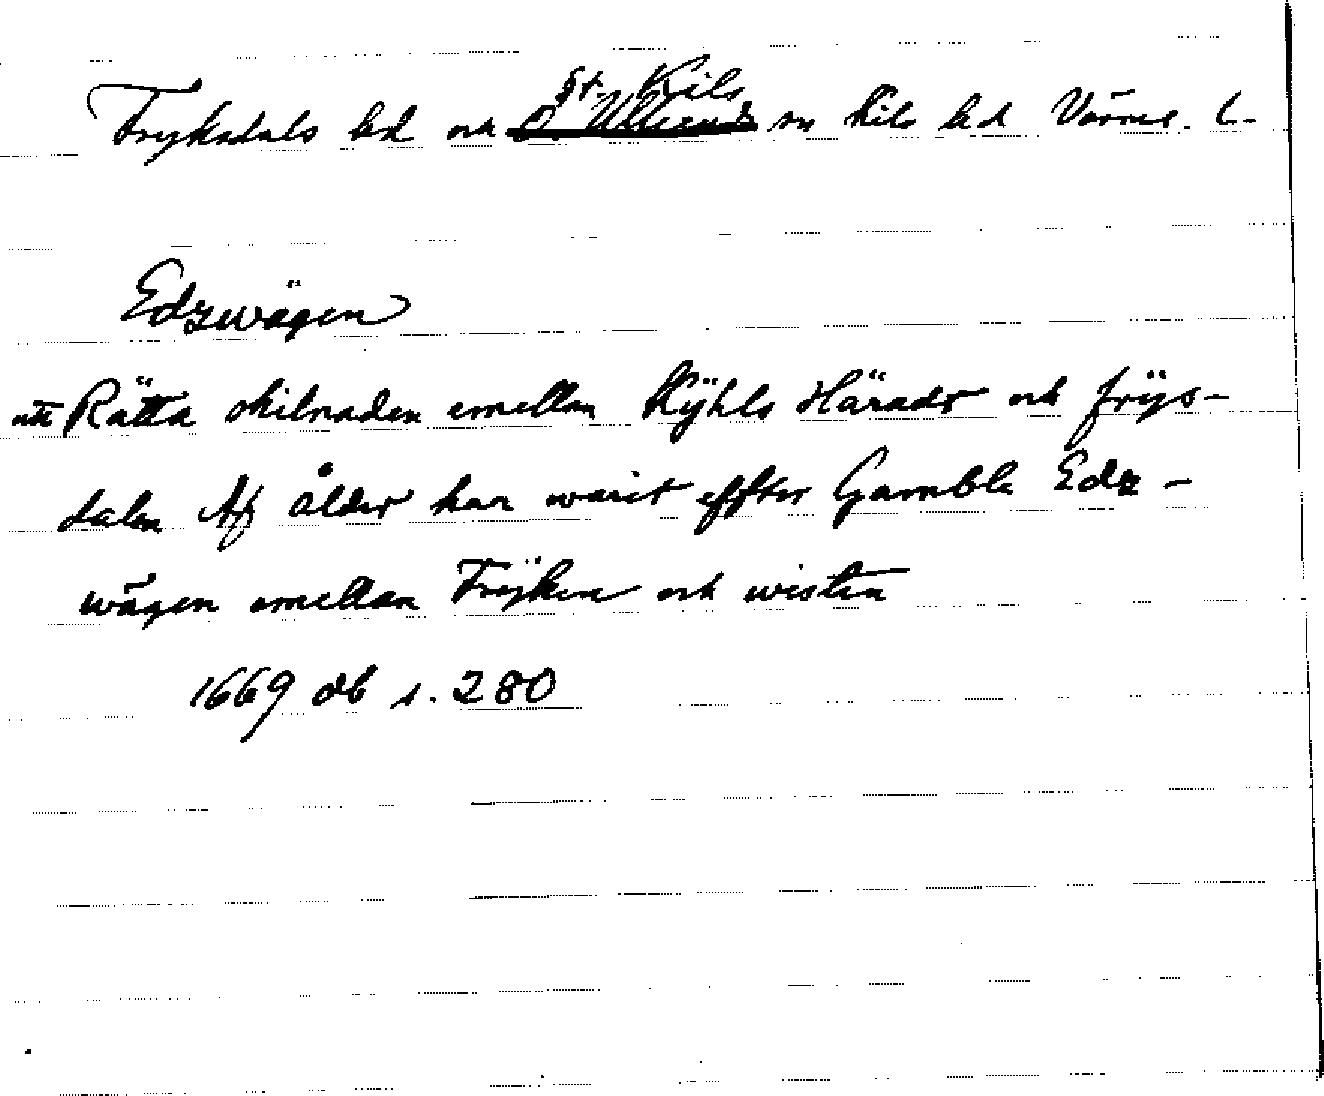 St. Kils
Fryksdals hd och Ö. Ullerud sn Kils hd Värml. l.
Edzwägen
att Rätta skilnaden emellan Kÿhls Häradr och frÿs-
dalen Af ålder har warit effter Gambla Edz-
wägen emellan Frÿken och wisten
1669 db s. 280